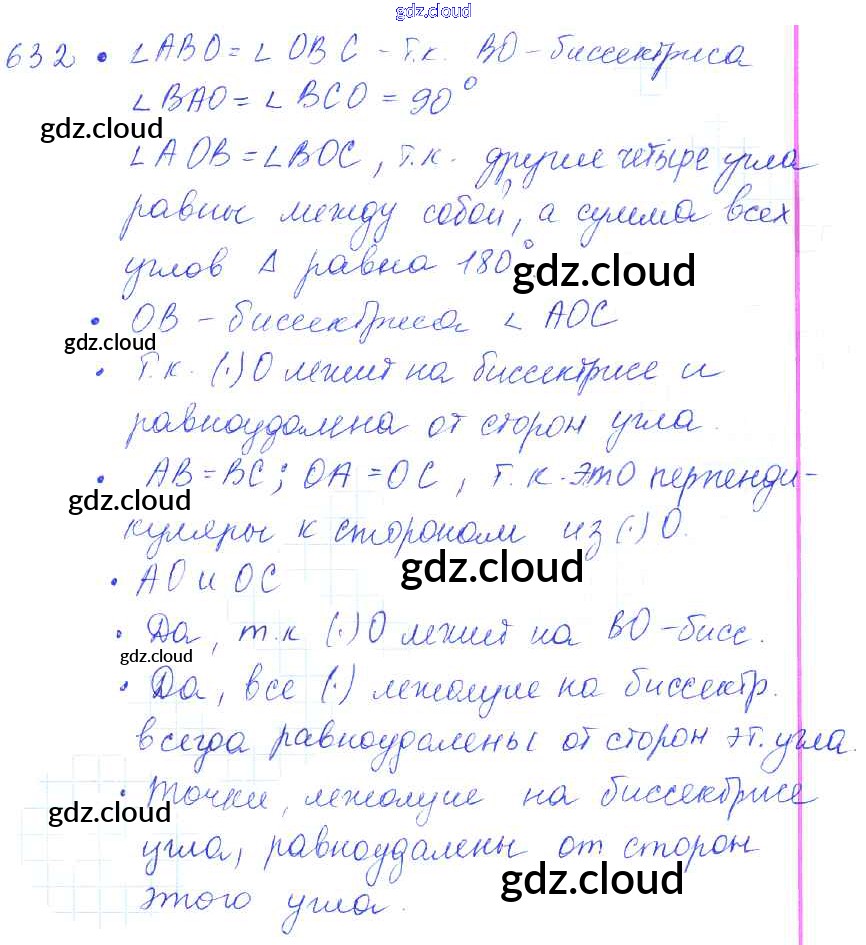 gdz.cloud
632 • ∠ABO = ∠OBC - т.к. BO - биссектриса
∠BAO = ∠BCO = 90°
gdz.cloud
∠AOB = ∠BOC, т.к. другие четыре угла
равны между собой, а сумма всех
углов Δ равна 180°.
gdz.cloud
• OB - биссектриса ∠AOC
gdz.cloud
• Т.к. (·) O лежит на биссектрисе и
равноудалена от сторон угла.
• AB = BC; OA = OC, т.к. это перпенди-
gdz.cloud
куляры к сторонам из (·) O.
gdz.cloud
• AO и OC
• Да, т.к (·) O лежит на BO - бисс.
gdz.cloud
• Да, все (·) лежащие на биссектр.
всегда равноудалены от сторон эт. угла.
• Точки, лежащие на биссектрисе
gdz.cloud
угла, равноудалены от сторон
gdz.cloud
этого угла.